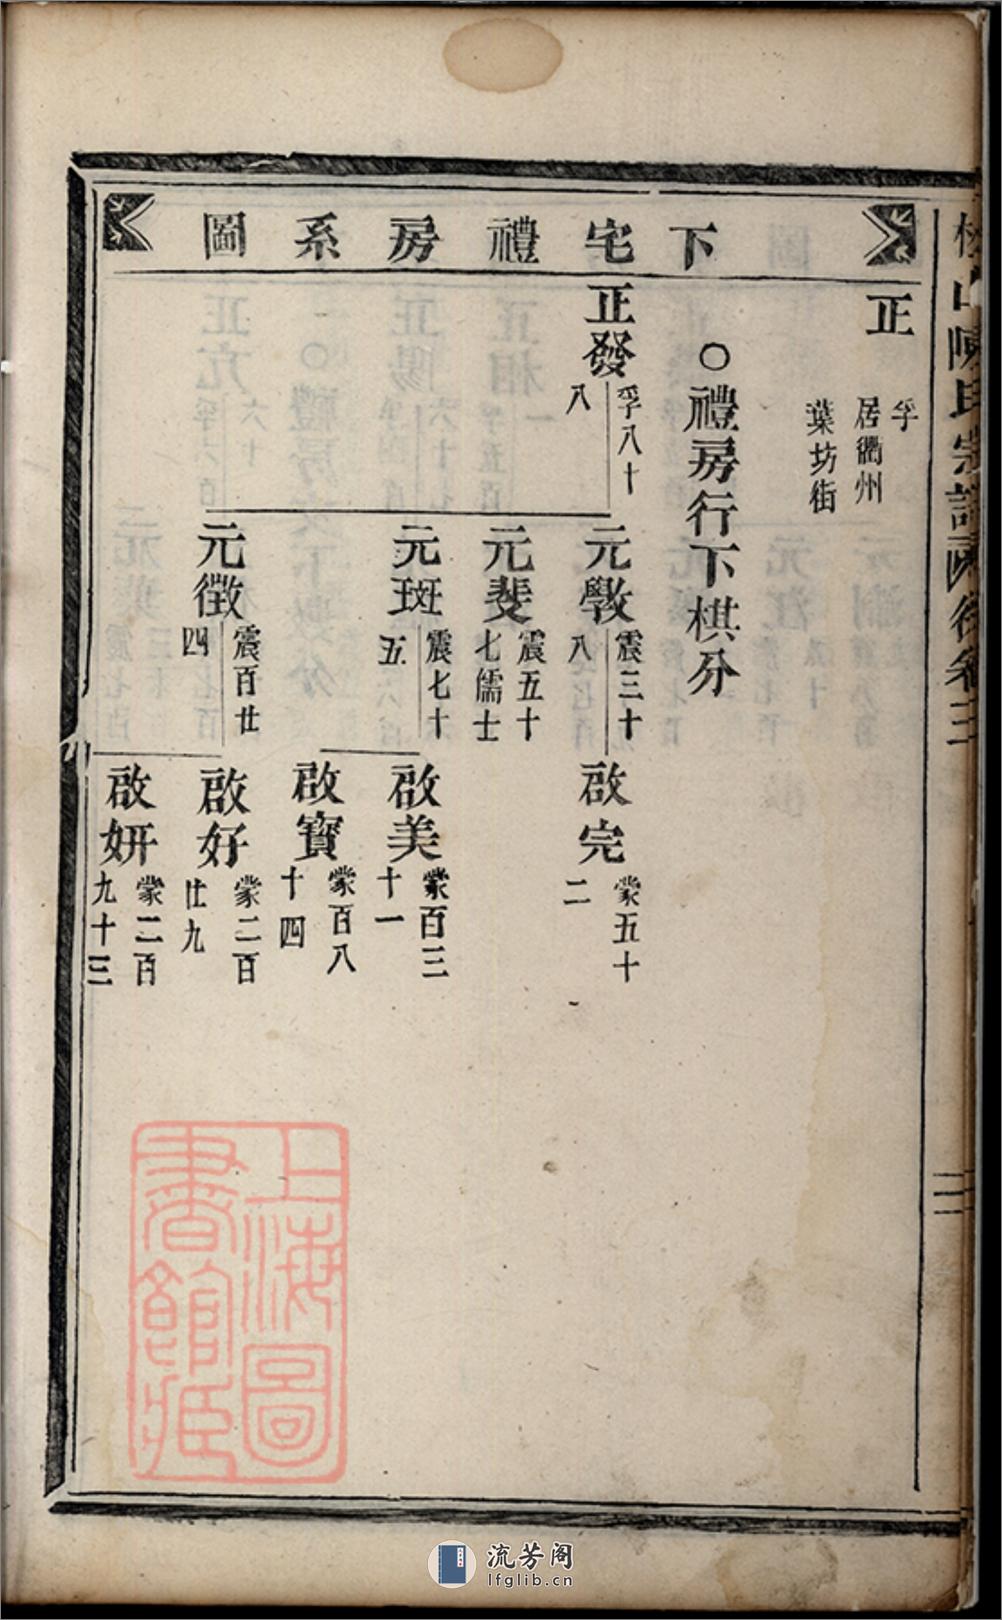 下宅禮房系圖
正
孚
居衢州
葉坊街
○禮房行下棋分
正發
孚八十
八
元斆
震三十
八
元斐
震五十
七儒士
元斑
震七十
五
元徵
震百廿
四
啟完
蒙五十
二
啟美
蒙百三
十一
啟寶
蒙百八
十四
啟好
蒙二百
廿九
啟妍
蒙二百
九十三
上海圖
書館藏
流芳阁
lfglib.cn